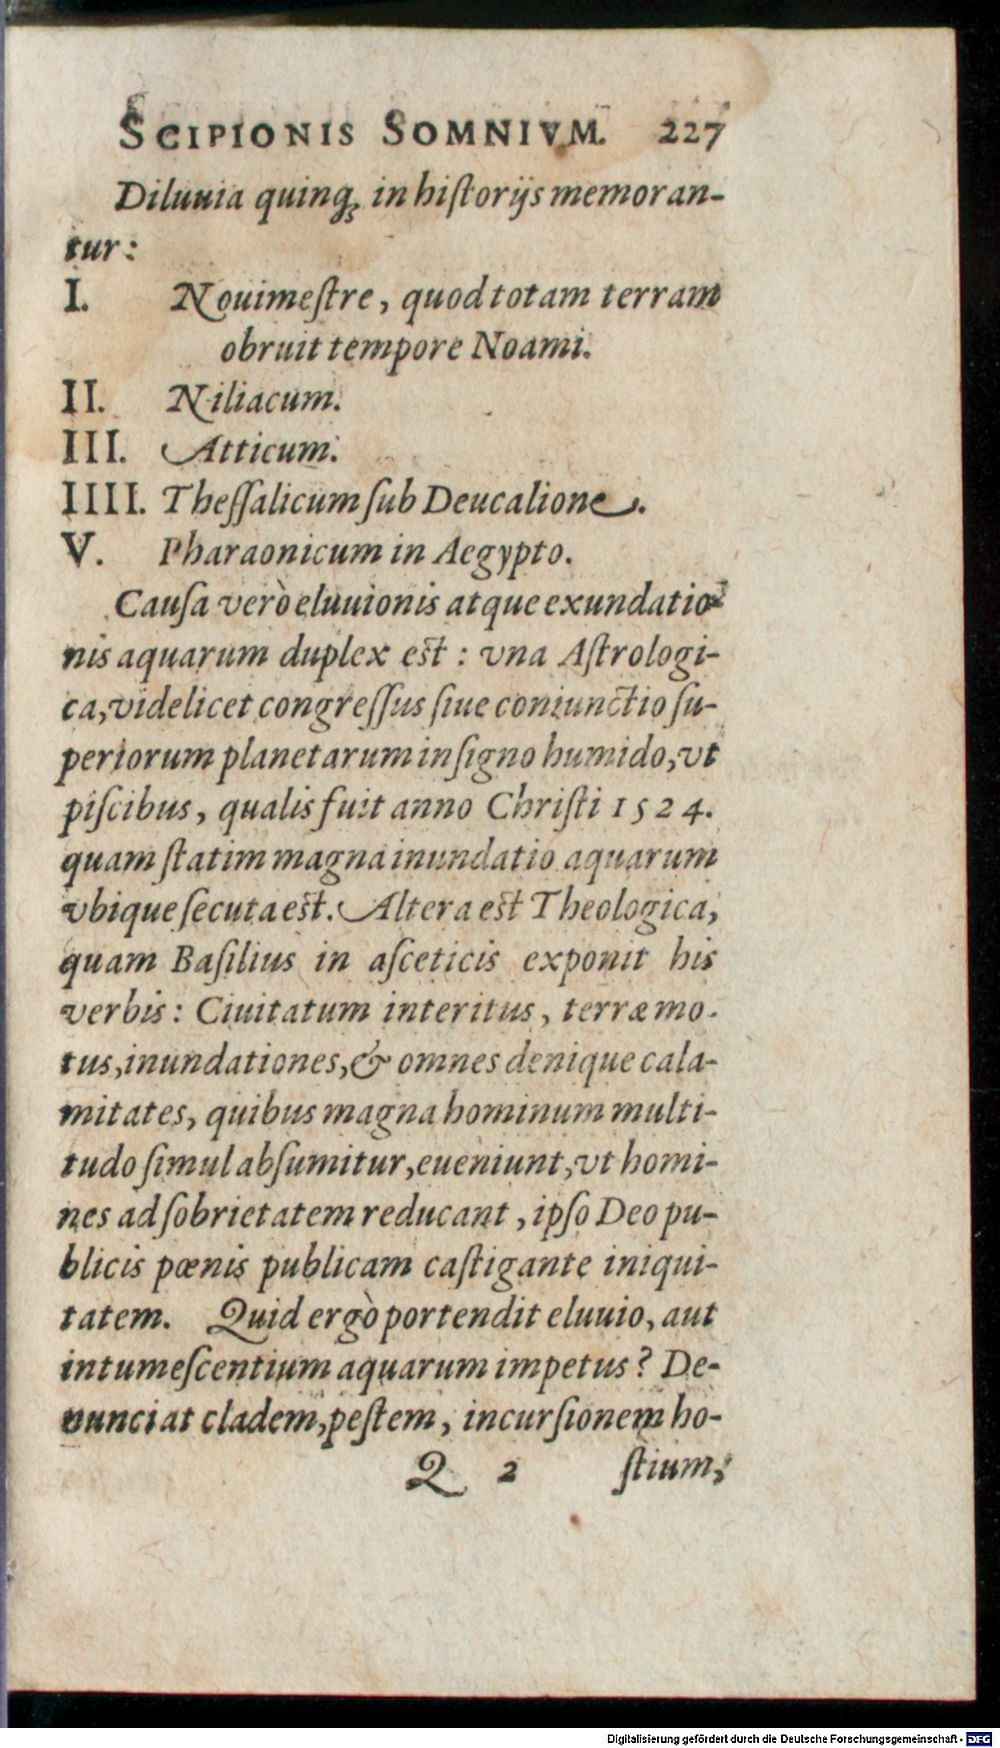 SCIPIONIS SOMNIVM. 227
Diluuia quinq; in hiſtorijs memoran-
tur:
I. Nouimeſtre, quod totam terram
obruit tempore Noami.
II. Niliacum.
III. Atticum.
IIII. Theſſalicum ſub Deucalione.
V. Pharaonicum in Aegypto.
Cauſa verò eluuionis atque exundatio-
nis aquarum duplex eſt: vna Aſtrologi-
ca, videlicet congreſſus ſiue coniunctio ſu-
periorum planetarum in ſigno humido, vt
piſcibus, qualis fuit anno Chriſti 1524.
quam ſtatim magna inundatio aquarum
vbique ſecuta eſt. Altera eſt Theologica,
quam Baſilius in aſceticis exponit his
verbis: Ciuitatum interitus, terræ mo-
tus, inundationes, & omnes denique cala-
mitates, quibus magna hominum multi-
tudo ſimul abſumitur, eueniunt, vt homi-
nes ad ſobrietatem reducant, ipſo Deo pu-
blicis pœnis publicam caſtigante iniqui-
tatem. Quid ergò portendit eluuio, aut
intumeſcentium aquarum impetus? De-
nunciat cladem, peſtem, incurſionem ho-
Q 2 ſtium,
Digitalisierung gefördert durch die Deutsche Forschungsgemeinschaft - DFG